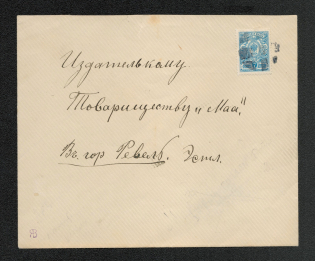 Издателькому
Товариществу „Маа“.
Въ гор Ревель. Эстл.